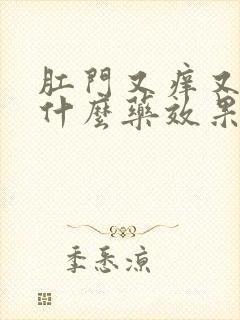 肛門又痒又
什麼藥效果
季悉凉